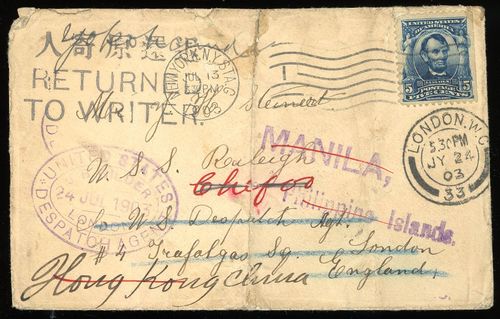 人寄原還
RETURN
TO WRITER.
NEW YORK, N.Y. STA. G
JUL 13
1903
UNITED STATES OF AMERICA
5 POSTAGE 5
FIVE CENTS
LONDON. W.C.
5.30PM
JY 24
03
33
Steinert
MANILA,
U. S. S. Raleigh
Chifoo
Philippine Islands.
UNITED STATES
24 JUL 1903
LONDON
DESPATCH AGENT
c/o U.S. Despatch Agt.
#4 Trafalgar Sq. London
England,
Hong Kong China